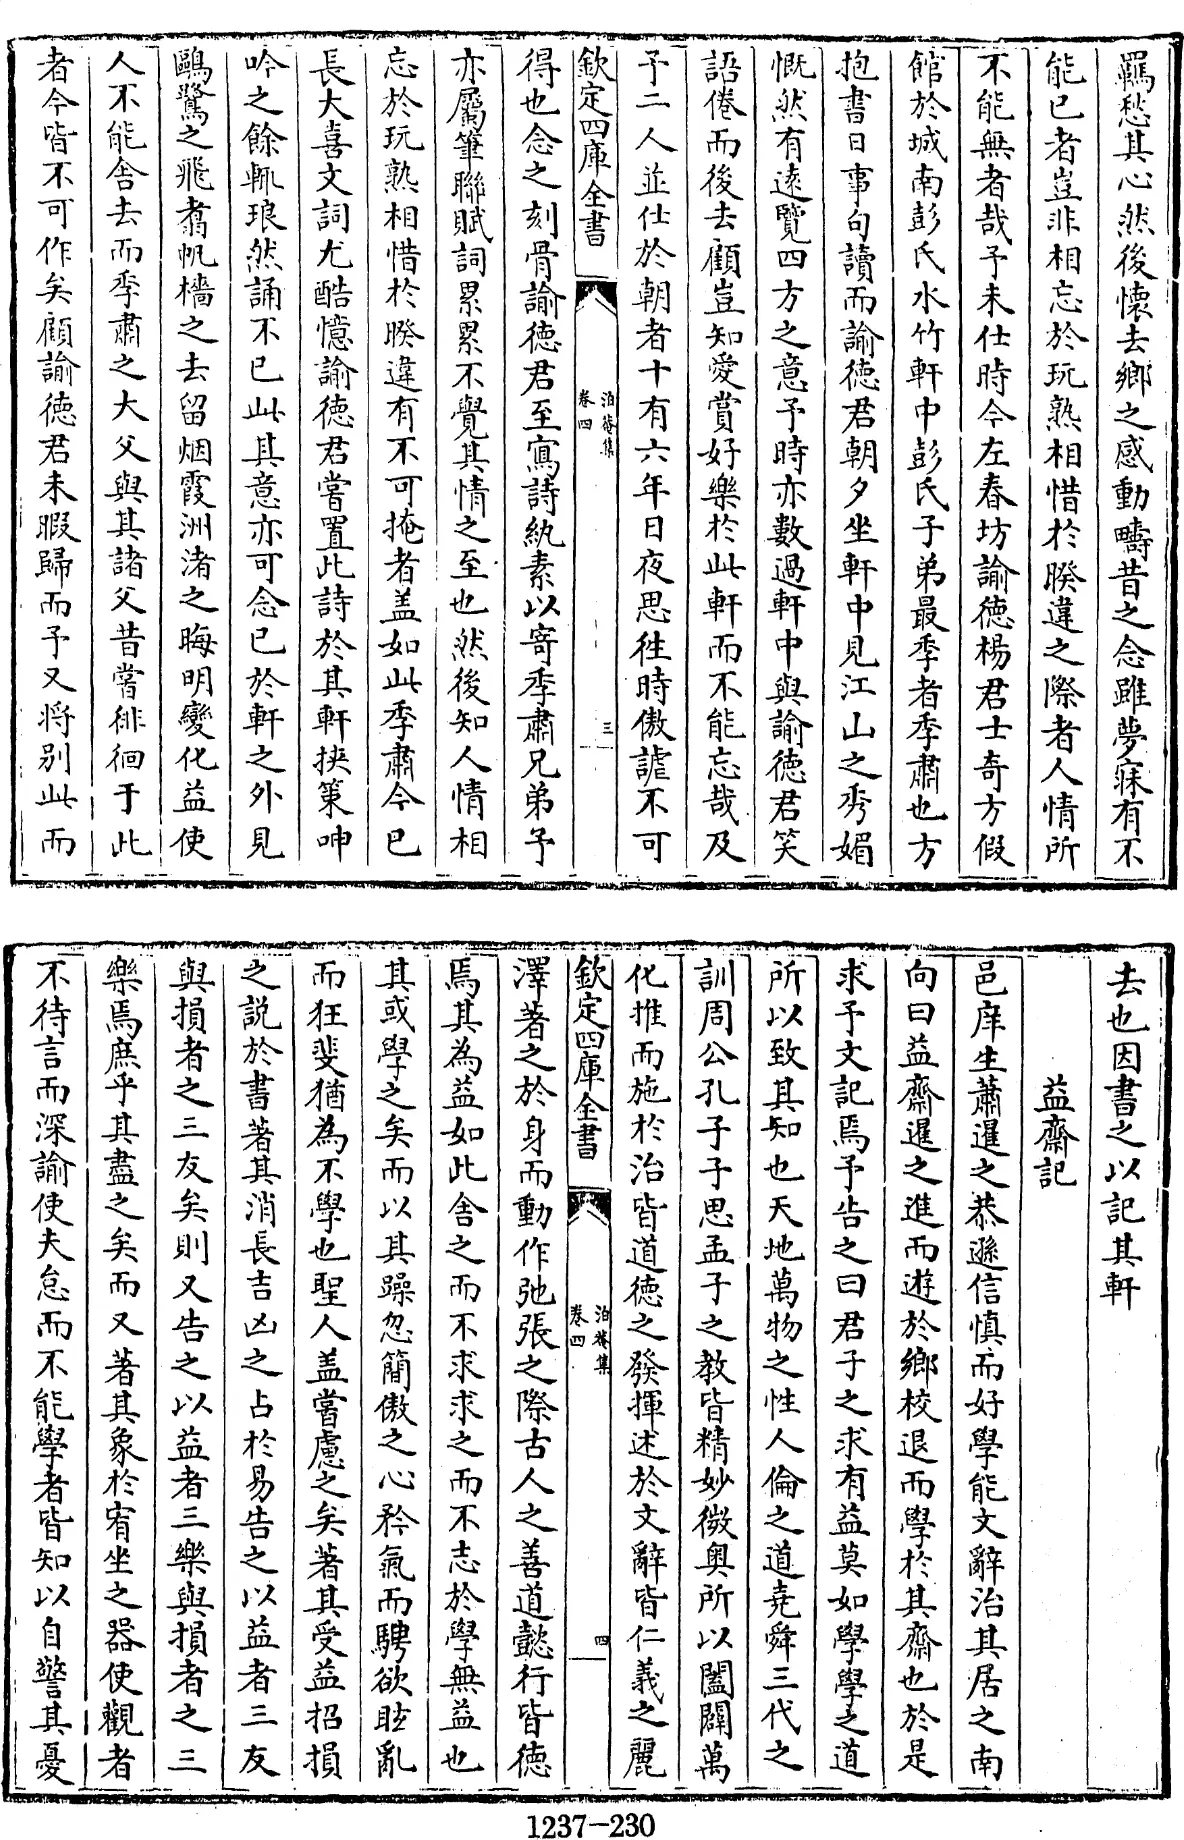 羈愁其心然後懷去鄉之感動疇昔之念雖夢寐有不
能已者豈非相忘於玩熟相惜於暌違之際者人情所
不能無者哉予未仕時今左春坊諭徳楊君士奇方假
館於城南彭氏水竹軒中彭氏子弟最季者季肅也方
抱書日事句讀而諭徳君朝夕坐軒中見江山之秀媚
慨然有遠覽四方之意予時亦數過軒中與諭徳君笑
語倦而後去顧豈知愛賞好樂於此軒而不能忘哉及
予二人並仕於朝者十有六年日夜思徃時傲謔不可
欽定四庫全書
泊菴集
卷四
三
得也念之刻骨諭徳君至寫詩紈素以寄季肅兄弟予
亦屬筆聯賦詞累累不覺其情之至也然後知人情相
忘於玩熟相惜於暌違有不可掩者盖如此季肅今已
長大喜文詞尤酷憶諭徳君嘗置此詩於其軒挾策呻
吟之餘輙琅然誦不已此其意亦可念已於軒之外見
鷗鷺之飛翥帆檣之去留烟霞洲渚之晦明變化益使
人不能舍去而季肅之大父與其諸父昔嘗徘徊于此
者今皆不可作矣顧諭徳君未暇歸而予又将別此而
去也因書之以記其軒
益齋記
邑庠生蕭暹之恭遜信慎而好學能文辭治其居之南
向曰益齋暹之進而遊於鄉校退而學於其齋也於是
求予文記焉予告之曰君子之求有益莫如學學之道
所以致其知也天地萬物之性人倫之道堯舜三代之
訓周公孔子子思孟子之教皆精妙微奥所以闔闢萬
化推而施於治皆道德之發揮述於文辭皆仁義之麗
欽定四庫全書
泊菴集
卷四
四
澤著之於身而動作弛張之際古人之善道懿行皆徳
焉其為益如此舍之而不求求之而不志於學無益也
其或學之矣而以其躁忽簡傲之心矜氣而騁欲眩亂
而狂斐猶為不學也聖人盖嘗慮之矣著其受益招損
之説於書著其消長吉凶之占於易告之以益者三友
與損者之三友矣則又告之以益者三樂與損者之三
樂焉庶乎其盡之矣而又著其象於宥坐之器使觀者
不待言而深諭使夫怠而不能學者皆知以自警其憂
1237-230